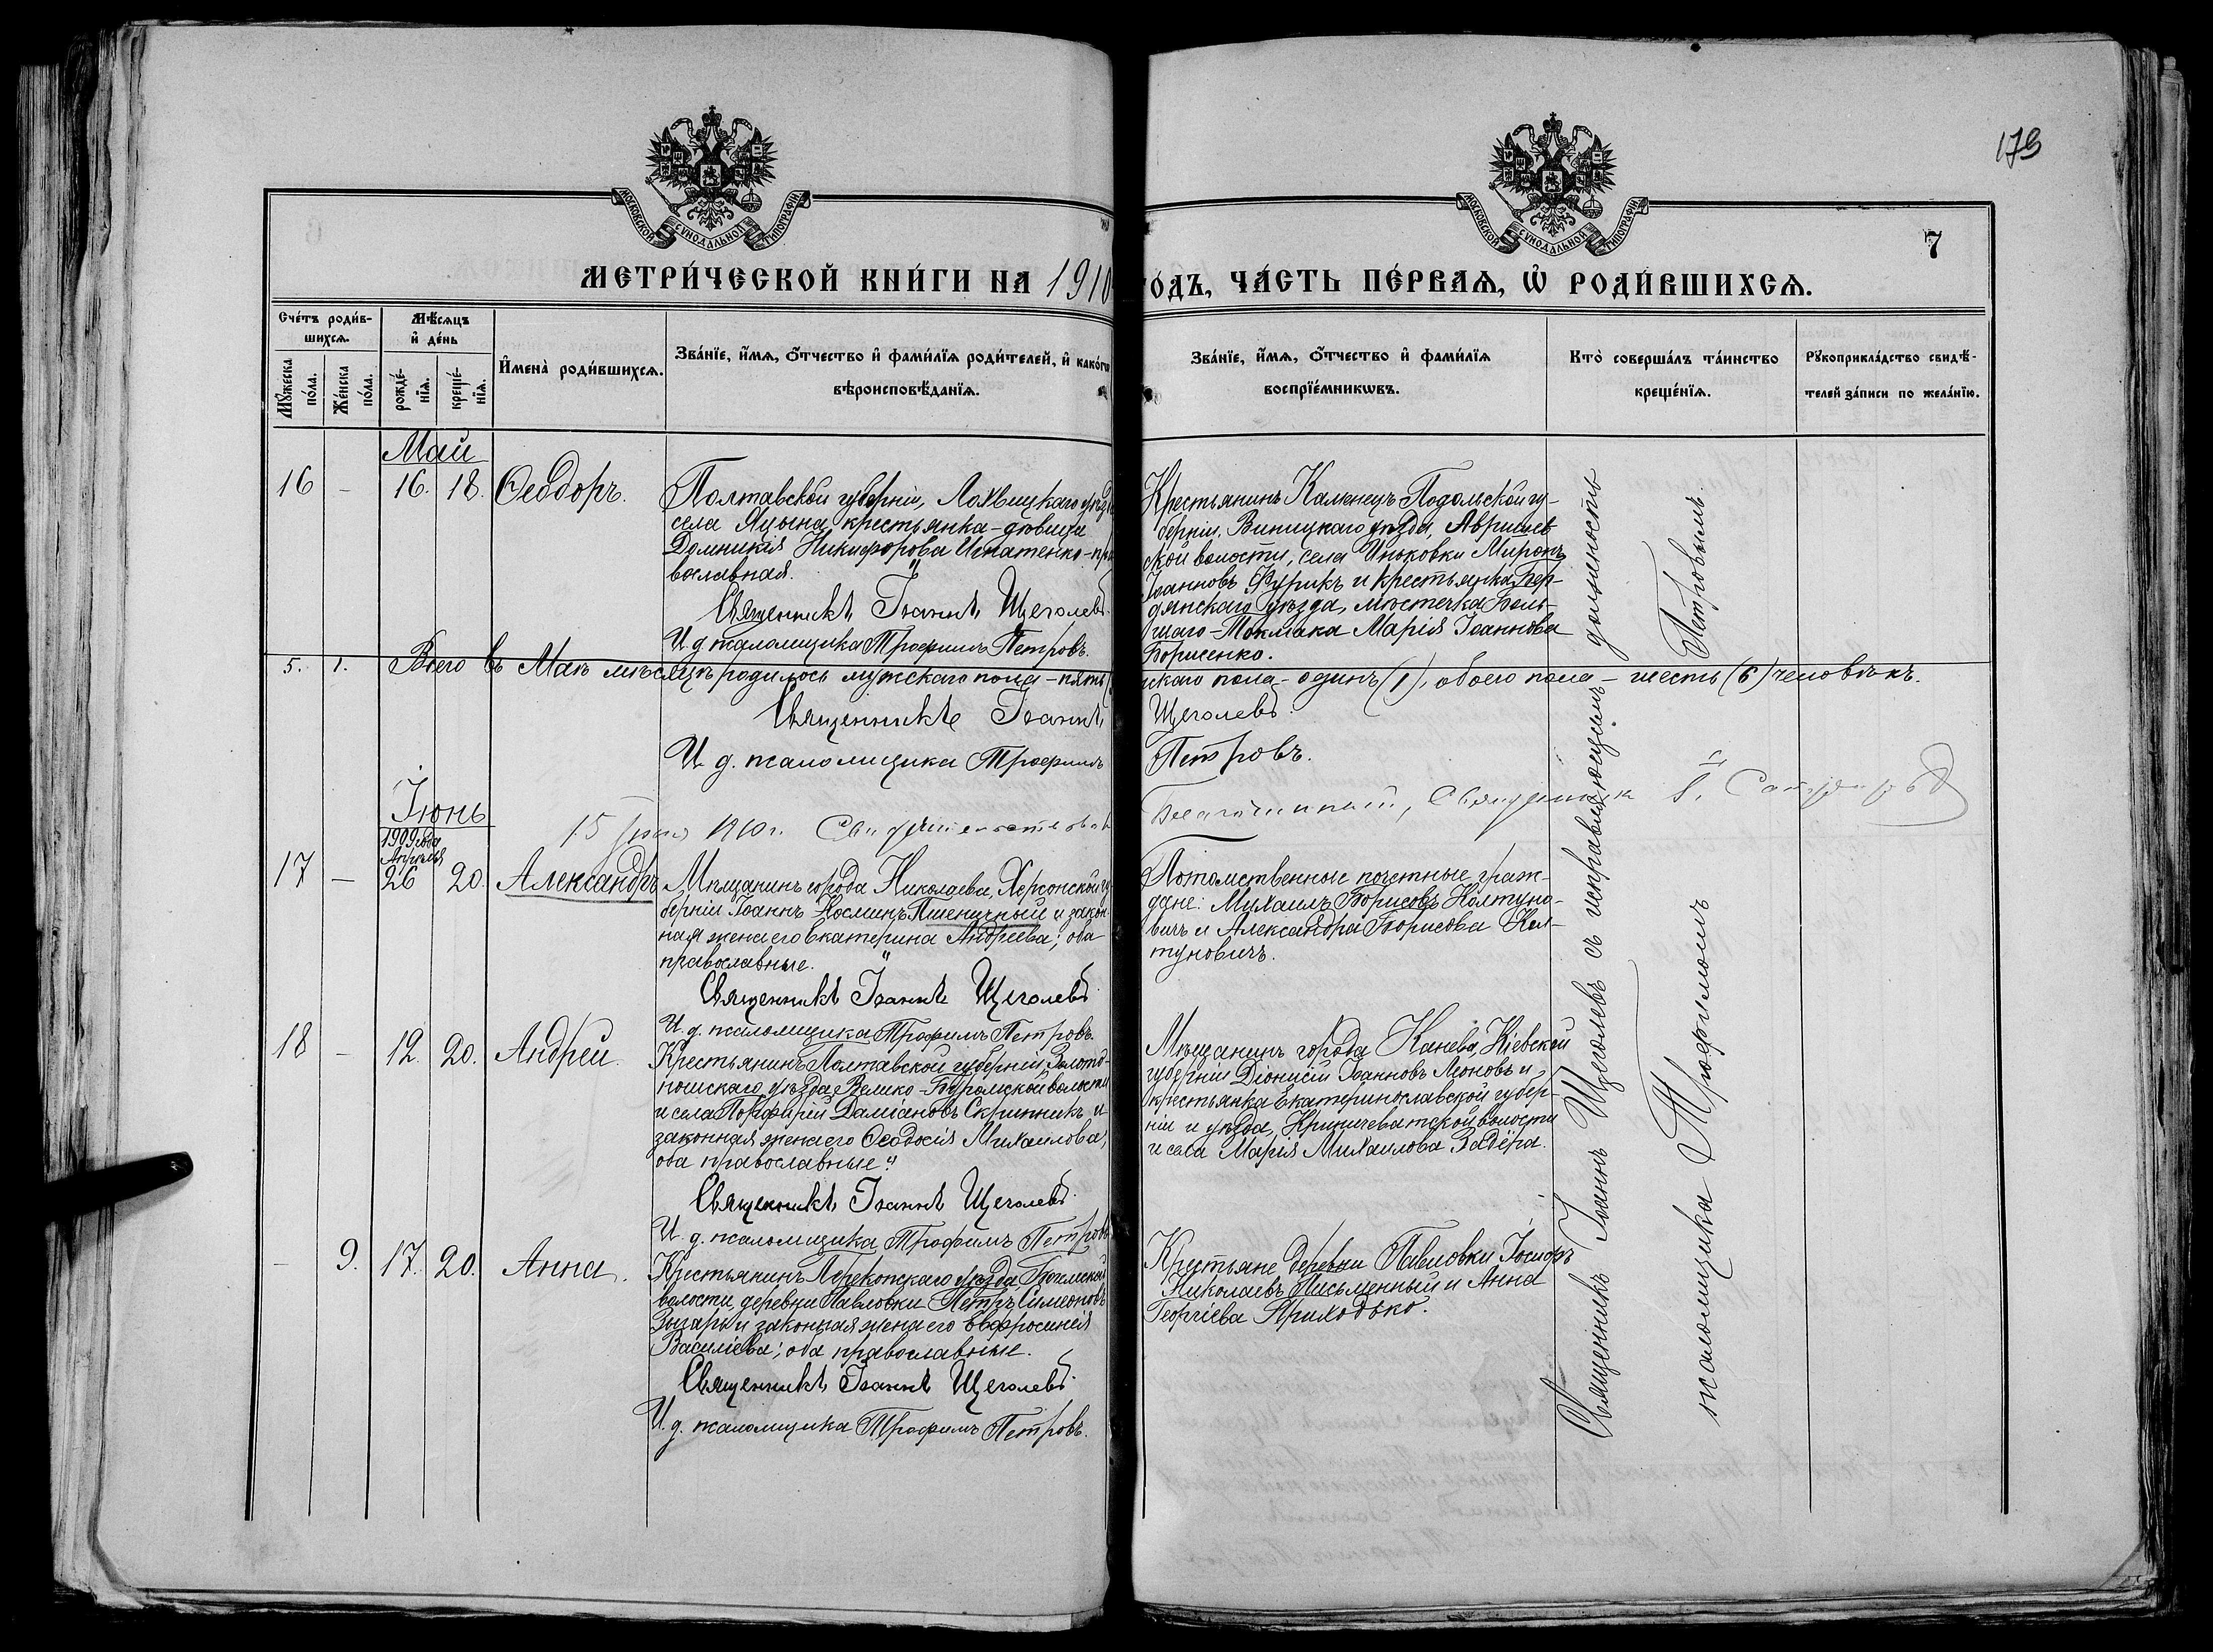 179
МОСКОВСКОЙ СУНОДАЛЬНОЙ ТИПОГРАФІИ
МОСКОВСКОЙ СУНОДАЛЬНОЙ ТИПОГРАФІИ
7
МЕТРИ́ЧЕСКОЙ КНИ́ГИ НА 1910
ОДЪ, ЧА́СТЬ ПЕ́РВАѦ, Ѡ҆ РОДИ́ВШИХСѦ.
Сче́тъ роди́в-
шихсѧ.
Мѣ́сѧцъ
и҆ де́нь
Му́жеска
по́ла.
Же́нска
по́ла.
рожде́-
нїѧ.
креще́-
нїѧ.
И҆мена̀ роди́вшихсѧ.
Зва́нїе, и҆́мѧ, ѻ҆́тчество и҆ фами́лїѧ роди́телей, и҆ како́гѡ
вѣроисповѣ́данїѧ.
Зва́нїе, и҆́мѧ, ѻ҆́тчество и҆ фами́лїѧ
воспрїе́мникѡвъ.
Кто̀ соверша́лъ та́инство
креще́нїѧ.
Рꙋкоприкла́дство свидѣ́-
телей за́писи по жела́нїю.
Май
16 - 16. 18. Ѳеодоръ.
Полтавской губерніи, Лохвицкаго уѣзда
села Яцына крестьянка-дѣвица
Домникія Никифорова Игнатенко-пра
вославная.
Священникъ Іоаннъ Щеголевъ.
И. д. псаломщика Трофимъ Петровъ.
Крестьянинъ Каменецъ Подольской гу-
берніи, Виницкаго уѣзда,
ской волости, села Миронъ
Іоанновъ Фурикъ и крестьянка Бер-
дянскаго уѣзда, мѣстечка Боль-
шаго-Токмака Марія Іоаннова
Борисенко.
5. 1. Всего въ Маѣ мѣсяцѣ родилось мужскаго пола-пять
нскаго пола-одинъ (1), обоего пола-шесть (6) человѣкъ.
Священникъ Іоаннъ
Щеголевъ.
И. д. псаломщика Трофимъ
Петровъ.
15 1910 г. Свидѣтельствовалъ
Благочинный, Священникъ
Іюнь
1909 года
Апрѣля
17 - 26 20. Александръ
Мѣщанинъ города Николаева, Херсонской гу
берніи Іоаннъ Косминъ Пшеничный и закон-
ная жена его Екатерина Андреева; оба
православные.
Священникъ Іоаннъ Щеголевъ
И. д. псаломщика Трофимъ Петровъ.
Потомственные почетные граж-
дане: Михаилъ Борисовъ Колтуно-
вичъ и Александра Борисова Кол-
туновичъ.
18 - 12. 20. Андрей.
Крестьянинъ Полтавской губерніи, Золото-
ношскаго уѣзда, Велико-Буромской волости
и села Порфирій Даміановъ Скрипникъ и
законная жена его Ѳеодосія Михаилова,
оба православные.
Священникъ Іоаннъ Щеголевъ.
И. д. псаломщика Трофимъ Петровъ
Мѣщанинъ города Канева, Кіевской
губерніи Діонисій Іоанновъ Леоновъ и
крестьянка Екатеринославской губер-
ніи и уѣзда, Криничеватской волости
и села Марія Михаилова Задёра.
- 9. 17. 20. Анна.
Крестьянинъ Перекопскаго уѣзда,
волости, деревни Павловки Петръ Симеоновъ
и законная жена его Евфросинія
Василіева; оба православные.
Священникъ Іоаннъ Щеголевъ.
И. д. псаломщика Трофимъ Петровъ.
Крестьяне деревни Павловки Іосифъ
Николаевъ Письменный и Анна
Георгіева Приходько.
Священникъ Іоаннъ Щеголевъ съ исправляющимъ должность
псаломщика Трофимомъ Петровымъ.